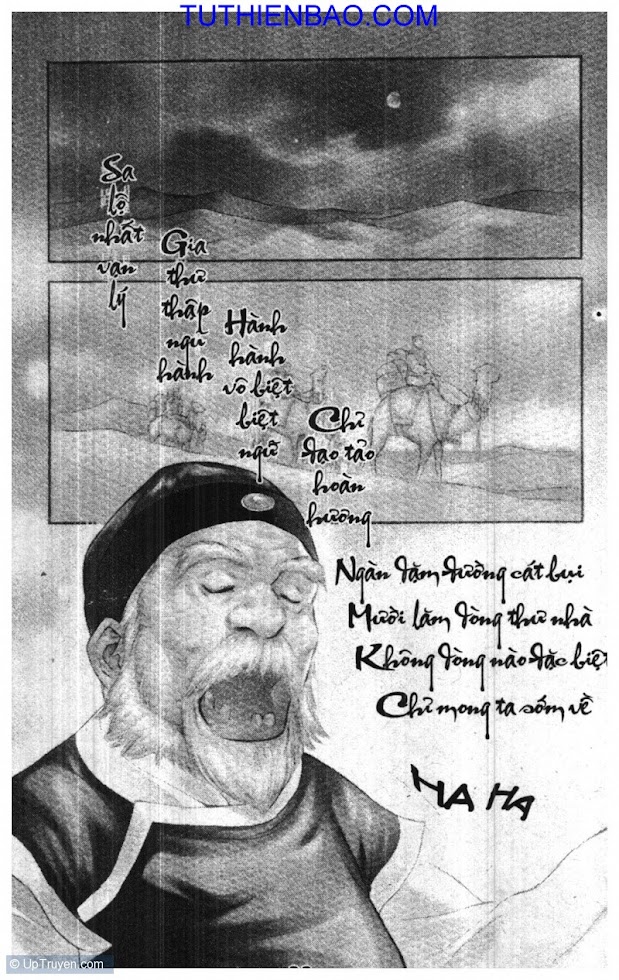 TUTHIENBAO.COM
Sa
lộ
nhất
vạn
lý
Gia
thư
thập
ngũ
hành
Hành
hành
vô biệt
biệt
ngữ
Chỉ
đạo tảo
hoàn
hương
Ngàn dặm đường cát bụi
Mười lăm dòng thư nhà
Không dòng nào đặc biệt
Chỉ mong ta sớm về
HA HA
© UpTruyen.com